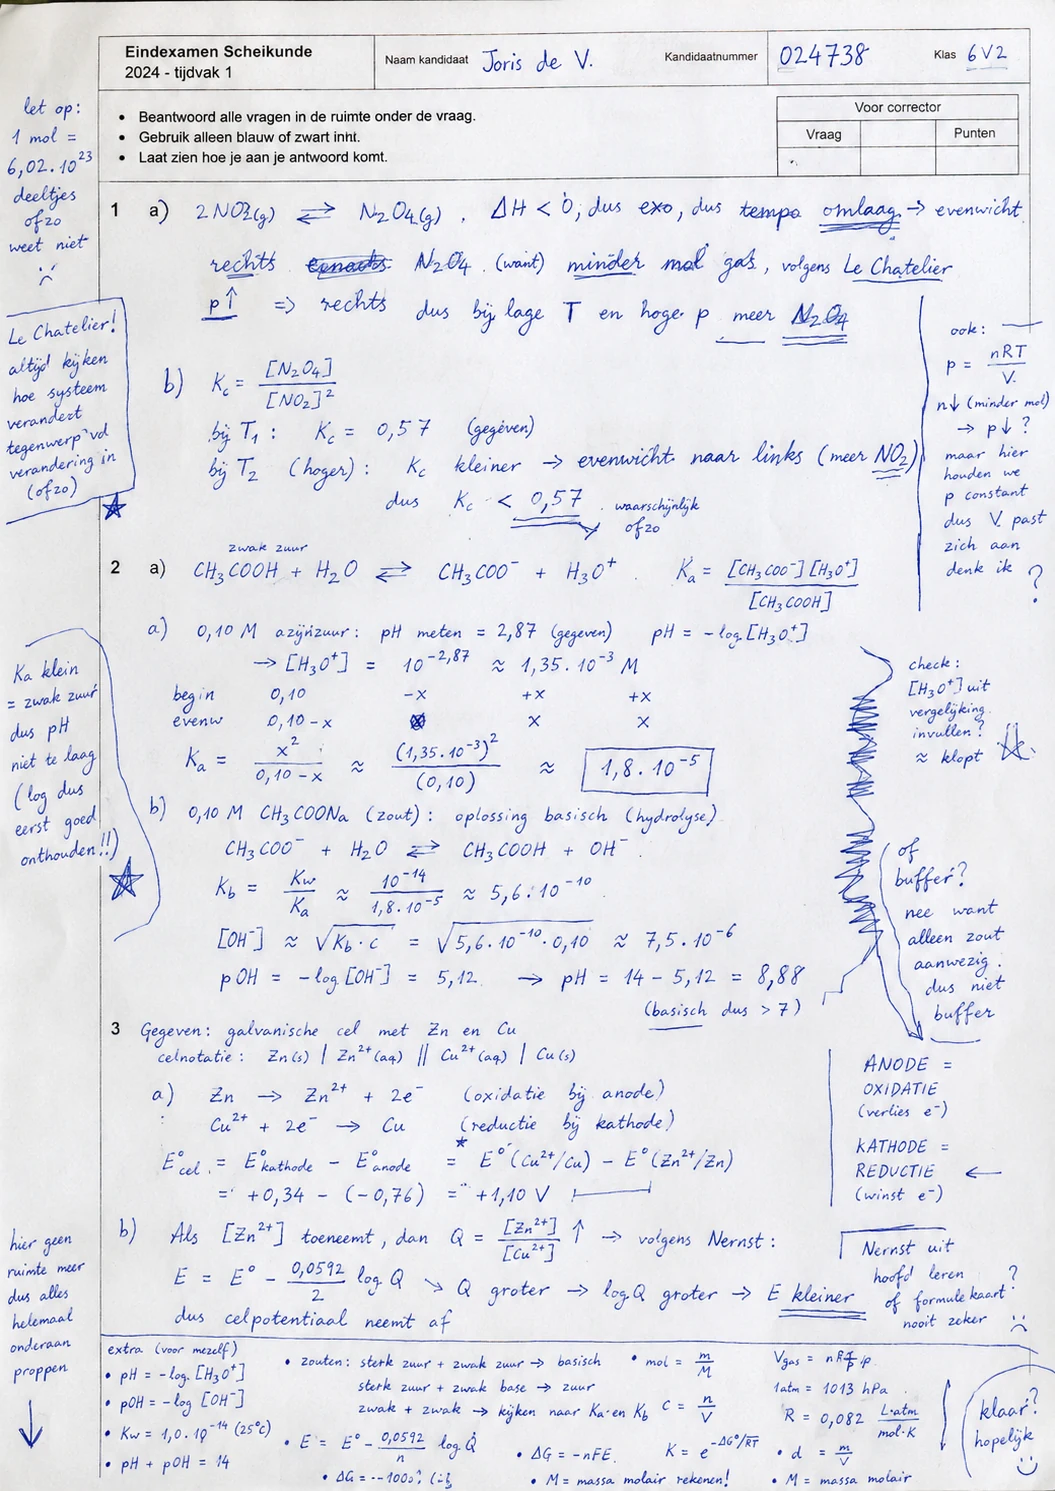 Eindexamen Scheikunde
2024 - tijdvak 1
Naam kandidaat Joris de V.
Kandidaatnummer 024738
Klas 6V2
• Beantwoord alle vragen in de ruimte onder de vraag.
• Gebruik alleen blauw of zwart innt.
• Laat zien hoe je aan je antwoord komt.
Voor corrector
Vraag Punten
let op:
1 mol =
6,02.10²³
deeltjes
ofzo
weet niet
:(
1 a) 2NO2(g) ⇌ N₂O₄(g). ΔH < 0, dus exo, dus tempo omlaag → evenwicht
rechts N₂O₄ (want) minder mol gas, volgens Le Chatelier
p↑ => rechts dus bij lage T en hoge p meer N₂O₄
Le Chatelier!
altijd kijken
hoe systeem
verandert
tegenwerp vd
verandering in
(ofzo)
b) Kc = [N₂O₄] / [NO₂]²
bij T₁: Kc = 0,57 (gegeven)
bij T₂ (hoger): Kc kleiner → evenwicht naar links (meer NO₂)
dus Kc < 0,57 waarschijnlijk
ofzo
ook:
p = nRT / V
n↓ (minder mol)
→ p↓ ?
maar hier
houden we
p constant
dus V past
zich aan
denk ik ?
zwak zuur
2 a) CH₃COOH + H₂O ⇌ CH₃COO⁻ + H₃O⁺ Ka = [CH₃COO⁻][H₃O⁺] / [CH₃COOH]
a) 0,10 M azijnzuur: pH meten = 2,87 (gegeven) pH = -log[H₃O⁺]
→ [H₃O⁺] = 10^-2,87 ≈ 1,35.10⁻³ M
begin 0,10 -x +x +x
evenw 0,10-x x x
Ka = x² / 0,10-x ≈ (1,35.10⁻³)² / (0,10) ≈ 1,8.10⁻⁵
Ka klein
= zwak zuur
dus pH
niet te laag
(log dus
eerst goed
onthouden!!)
check:
[H₃O⁺] uit
vergelijking
invullen?
≈ klopt
b) 0,10 M CH₃COONa (zout): oplossing basisch (hydrolyse)
CH₃COO⁻ + H₂O ⇌ CH₃COOH + OH⁻
Kb = Kw / Ka ≈ 10⁻¹⁴ / 1,8.10⁻⁵ ≈ 5,6.10⁻¹⁰
[OH⁻] ≈ √Kb·c = √5,6.10⁻¹⁰.0,10 ≈ 7,5.10⁻⁶
pOH = -log[OH⁻] = 5,12 → pH = 14 - 5,12 = 8,88
(basisch dus > 7)
of
buffer?
nee want
alleen zout
aanwezig.
dus niet
buffer
3 Gegeven: galvanische cel met Zn en Cu
celnotatie: Zn(s) | Zn²⁺(aq) || Cu²⁺(aq) | Cu(s)
a) Zn → Zn²⁺ + 2e⁻ (oxidatie bij anode)
Cu²⁺ + 2e⁻ → Cu (reductie bij kathode)
E°cel = E°kathode - E°anode = E°(Cu²⁺/Cu) - E°(Zn²⁺/Zn)
= +0,34 - (-0,76) = +1,10 V
ANODE =
OXIDATIE
(verlies e⁻)
KATHODE =
REDUCTIE ←
(winst e⁻)
b) Als [Zn²⁺] toeneemt, dan Q = [Zn²⁺] / [Cu²⁺] ↑ → volgens Nernst:
E = E° - 0,0592 / 2 log Q ↘ Q groter → logQ groter → E kleiner
dus celpotentiaal neemt af
Nernst uit
hoofd leren
of formulekaart?
nooit zeker :(
hier geen
ruimte meer
dus alles
helemaal
onderaan
proppen
↓
extra (voor mezelf)
• pH = -log[H₃O⁺]
• pOH = -log[OH⁻]
• Kw = 1,0.10⁻¹⁴ (25°C)
• pH + pOH = 14
• zouten: sterk zuur + zwak zuur → basisch
sterk zuur + zwak base → zuur
zwak + zwak → kijken naar Ka en Kb
• E = E° - 0,0592 / n log Q
• mol = m / M
C = n / V
• ΔG = -nFE
K = e^-ΔG°/RT
• M = massa molair rekenen!
1atm = 1013 hPa
R = 0,082 L·atm / mol·K
• d = m / V
• M = massa molair
klaar?
hopelijk
:)